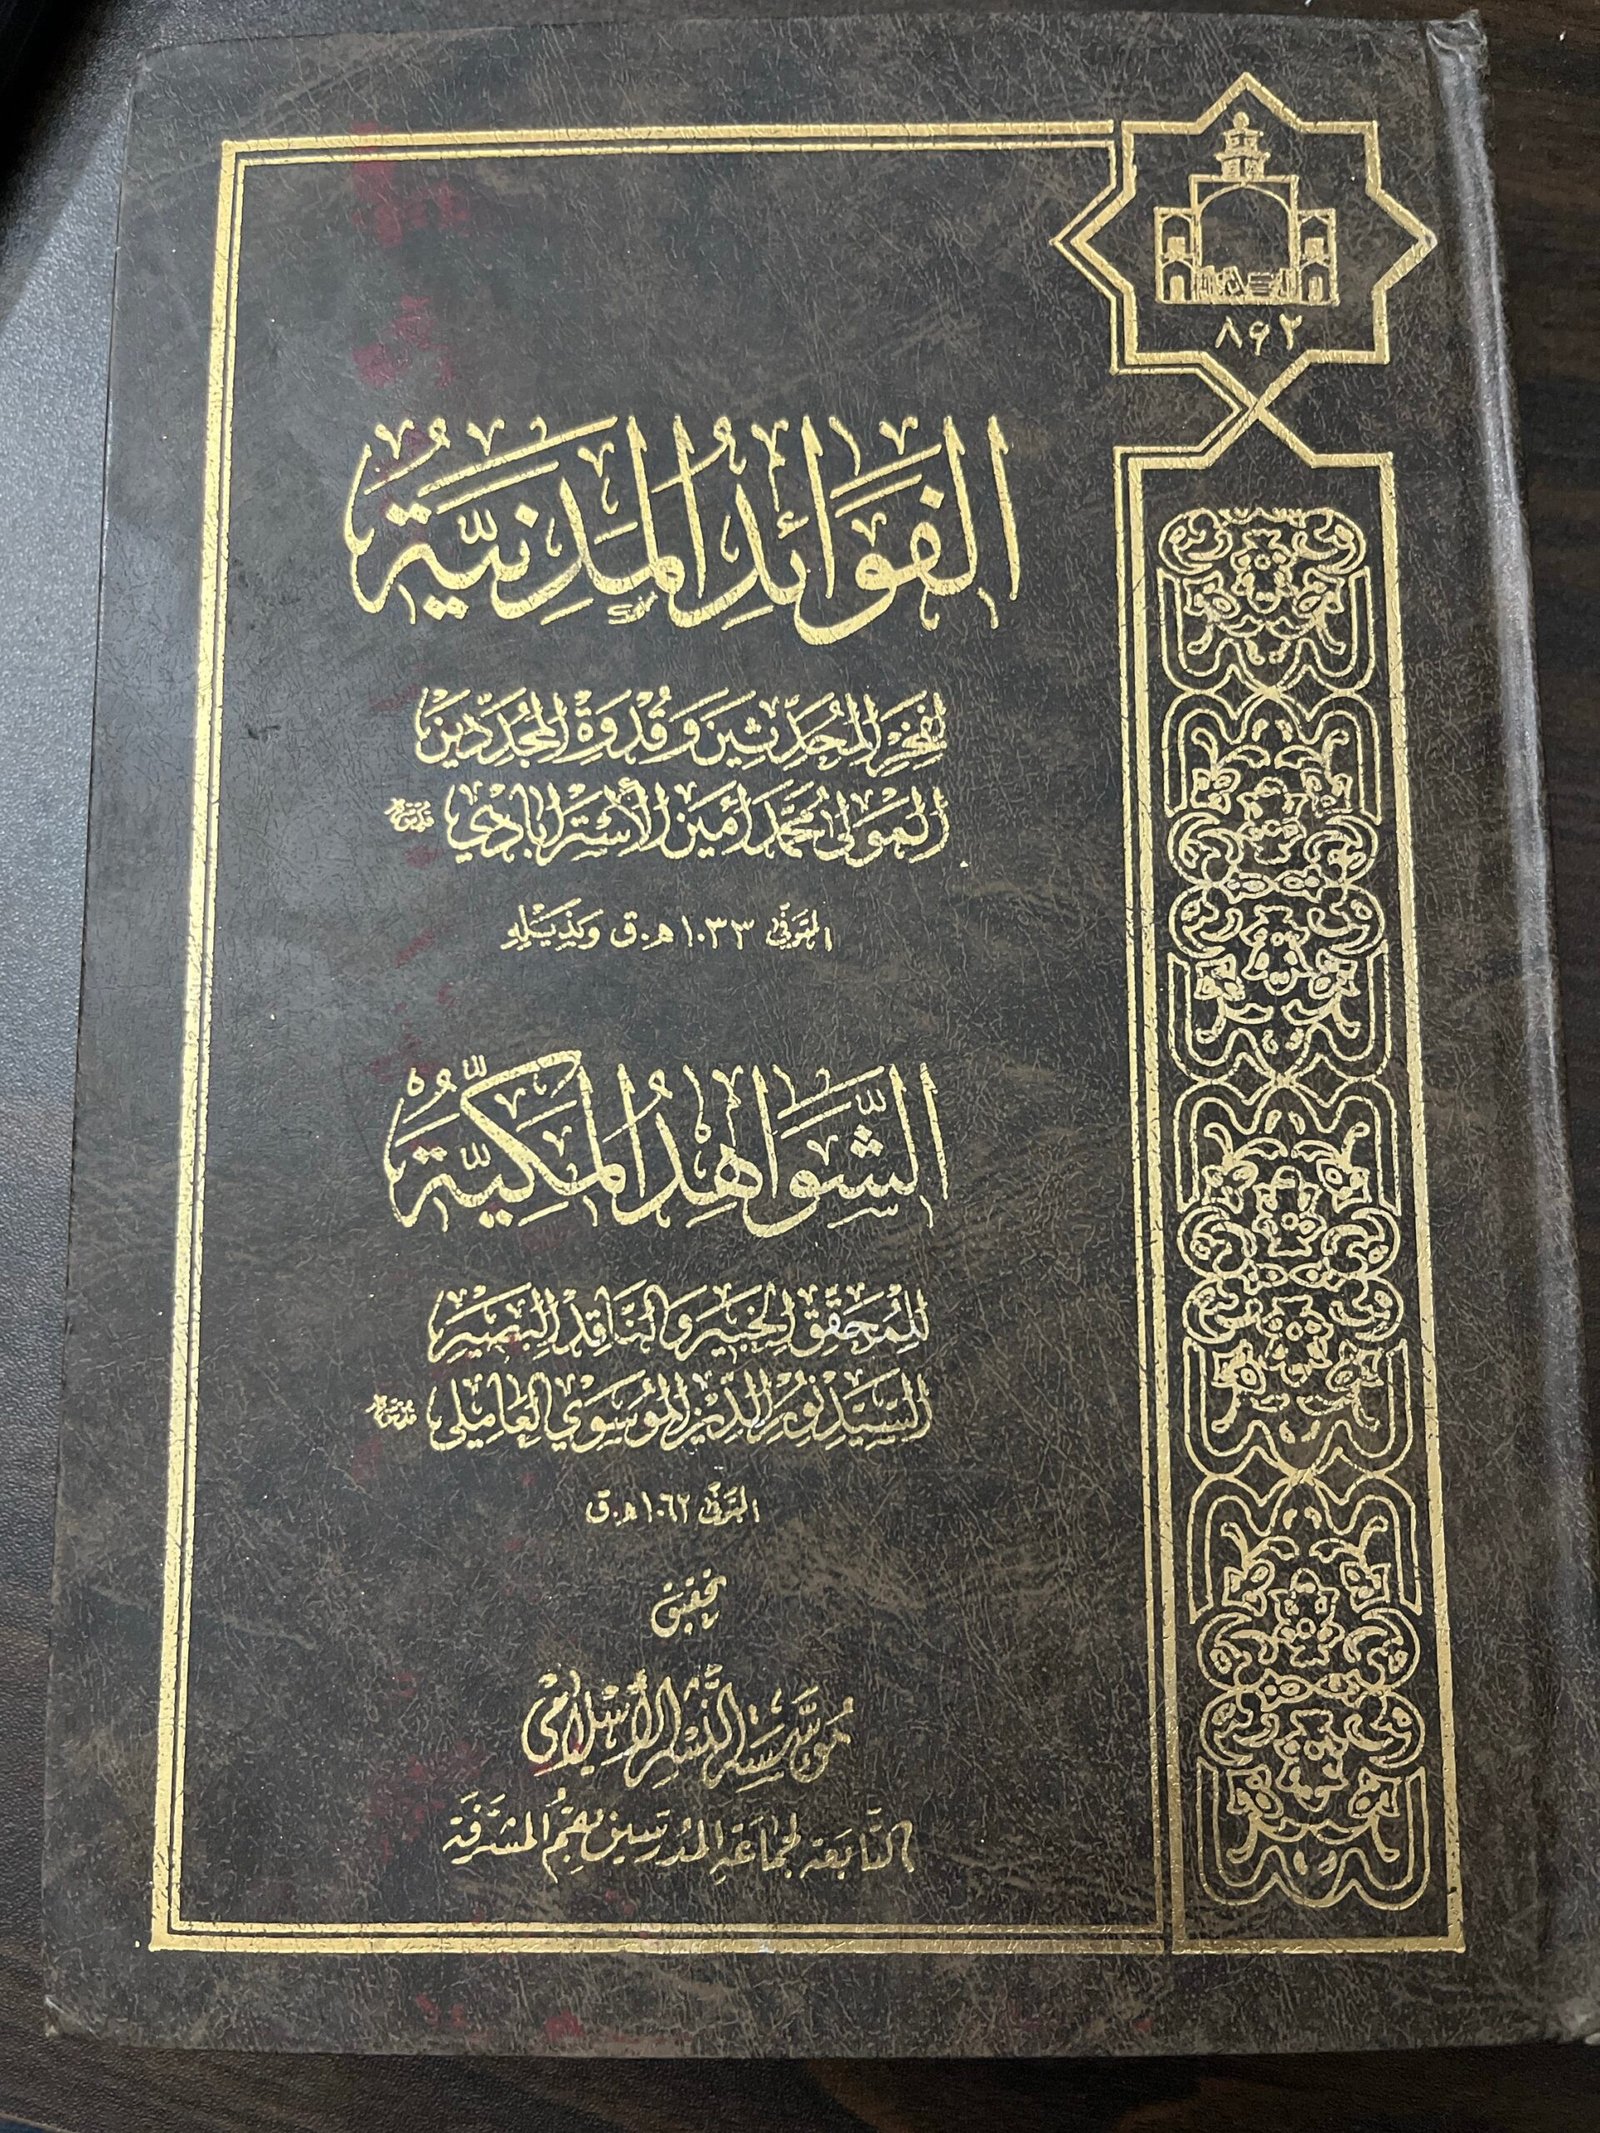 ٨٦٢
الفَوَائِدُ المَدَنِيَّةُ
لِفَخْرِ المُحَدِّثِينَ وَقُدْوَةِ المُجَدِّدِينَ
المَوْلىٰ مُحَمَّد أَمِين الأَسْتَرابَادِي قدس سره
المتوفّى ١٠٣٣ هـ.ق وَبِذَيْلِهِ
الشَّوَاهِدُ المَكِّيَّةُ
لِلْمُحَقِّقِ الخَبِيرِ وَالنَّاقِدِ البَصِيرِ
السَّيِّدِ نُورِ الدِّينِ المُوسَوِي العَامِلِي قدس سره
المتوفّى ١٠٦٢ هـ.ق
تحقيق
مُؤَسَّسَة النَّشْرِ الإِسْلَامِي
التَّابِعَة لِجَمَاعَةِ المُدَرِّسِين بِقُمِ المُشَرَّفَة